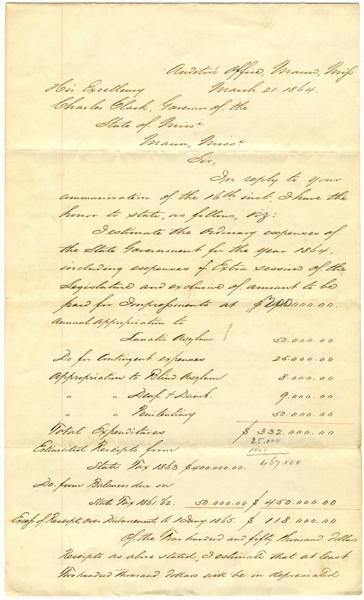 Auditor's Office, Macon, Miss
March 21 1864.
His Excellency
Charles Clark, Governor of the
State of Miss.
Macon, Miss.
Sir,
In reply to your
communication of the 16th inst. I have the
honor to state, as follows, viz:
I estimate the Ordinary expenses of
the State Government for the year 1864,
including expenses of Extra session of the
Legislature and exclusive of amount to be
paid for Impressments at $ 240,000.00.
Annual appropriation to
Lunatic Asylum 50.000.00
Do. for Contingent expenses 25.000.00
Appropriation to Blind Asylum 8.000.00
" " Deaf & Dumb. 9.000.00
" " Penitentiary 50.000.00
Total Expenditures $ 332.000.00
25.000
Estimated Receipts from
467.000
State Tax 1863 $400.000.00.
Do. from Balances due on
State Tax 1861.62. 50.000.00 $ 450.000.00
Excess of Receipts over Disbursements to 1 Jany 1865. $ 118.000.00
Of the Four hundred and fifty thousand dollars
Receipts as above stated, I estimate that at least
Two hundred thousand dollars will be in depreciated